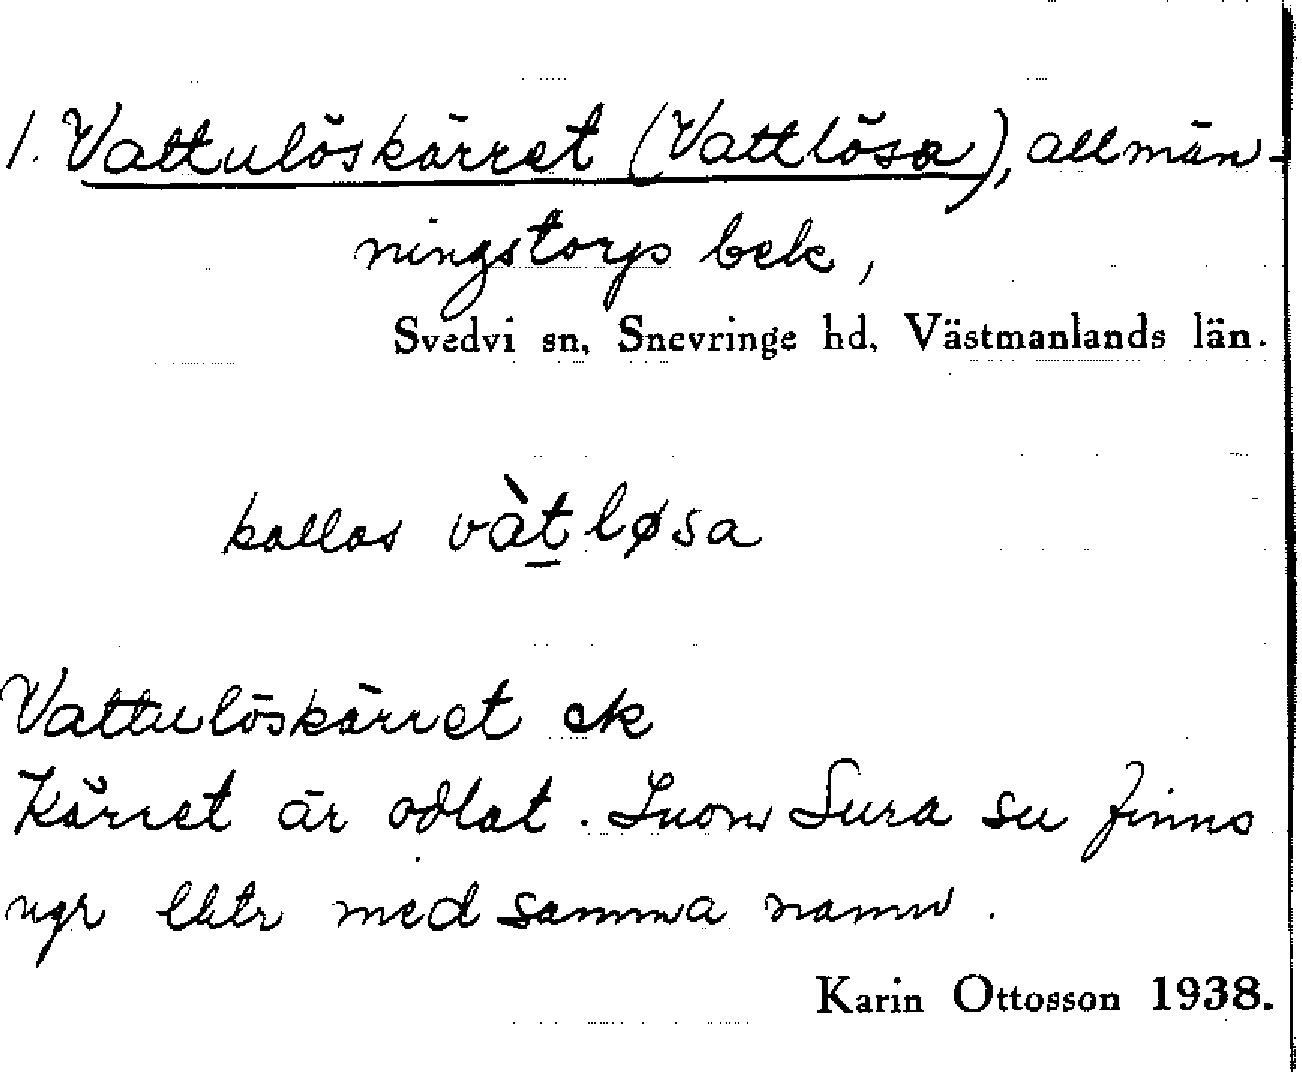 1. Vattulöskärret (Vattlösa), allmän-
ningstorp bek,
Svedvi sn, Snevringe hd, Västmanlands län.
kallas vàt̲løsa
Vattulöskärret ek
Kärret är odlat. Inom Sura sn finns
ngr lhtr med samma namn.
Karin Ottosson 1938.